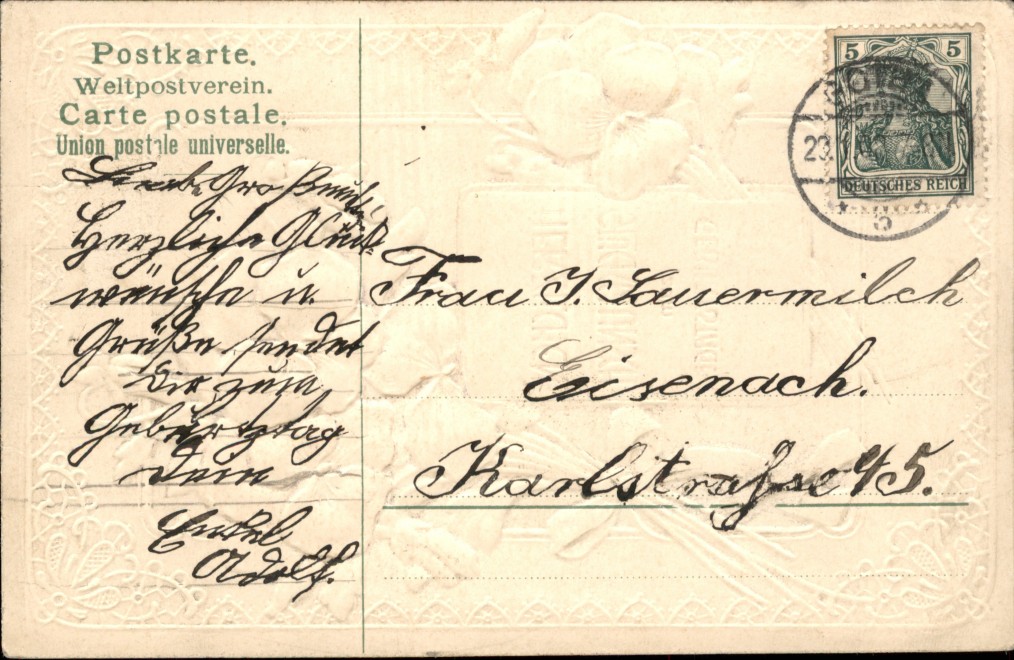 Postkarte.
Weltpostverein.
Carte postale.
Union postale universelle.
Liebe Großmutter!
Herzliche Glück-
wünsche u.
Grüße sendet
Dir zum
Geburtztag
Dein
Enkel
Adolf.
5 5
DEUTSCHES REICH
Frau I. Sauermilch
Eisenach.
Karlstrasse 45.